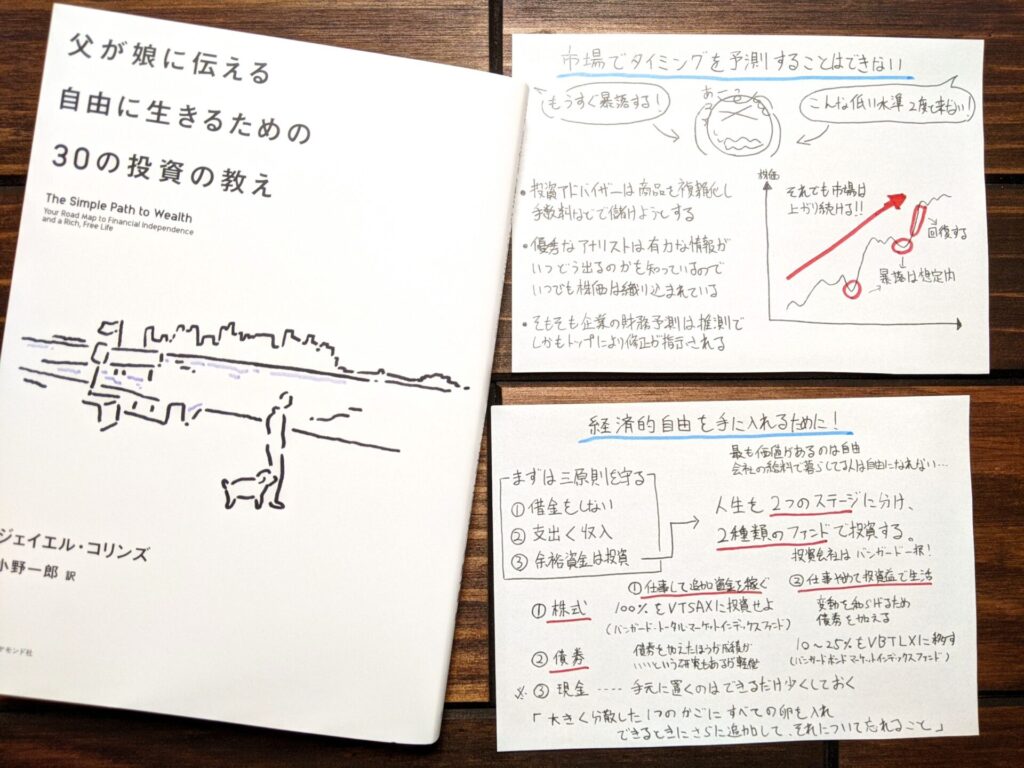 父が娘に伝える
自由に生きるための
30の投資の教え
The Simple Path to Wealth
Your Road Map to Financial Independence
and a Rich, Free Life
ジェイエル・コリンズ
小野一郎 訳
市場でタイミングを予測することはできない
もうすぐ暴落する！
こんな低い水準2度と来ない！
・投資アドバイザーは商品を複雑化し
手数料などで儲けようとする
・優秀なアナリストは有力な情報が
いつどう出るのかを知っているので
いつでも株価は織り込まれている
・そもそも企業の財務予測は推測で
しかもトップにより修正が指示される
株価
それでも市場は
上がり続ける!!
回復する
暴落は想定内
経済的自由を手に入れるために！
最も価値があるのは自由
会社の給料で暮らしてる人は自由になれない…
まずは三原則を守る
①借金をしない
②支出く収入
③余裕資金は投資
人生を2つのステージに分け、
2種類のファンドで投資する。
投資会社はバンガード一択！
①仕事して追加資金を稼ぐ
②仕事やめて投資益で生活
①株式
100%をVTSAXに投資せよ
(バンガード・トータル・マーケットインデックスファンド)
変動を和らげるため
債券を加える
②債券
債券を加えたほうが成績が
いいという研究もあるが軽微
10～25%をVBTLXに移す
(バンガードボンドマーケットインデックスファンド)
※③現金 ---- 手元に置くのはできるだけ少くしておく
「大きく分散した1つのかごにすべての卵を入れ
できるときにさらに追加して、それについて忘れること」